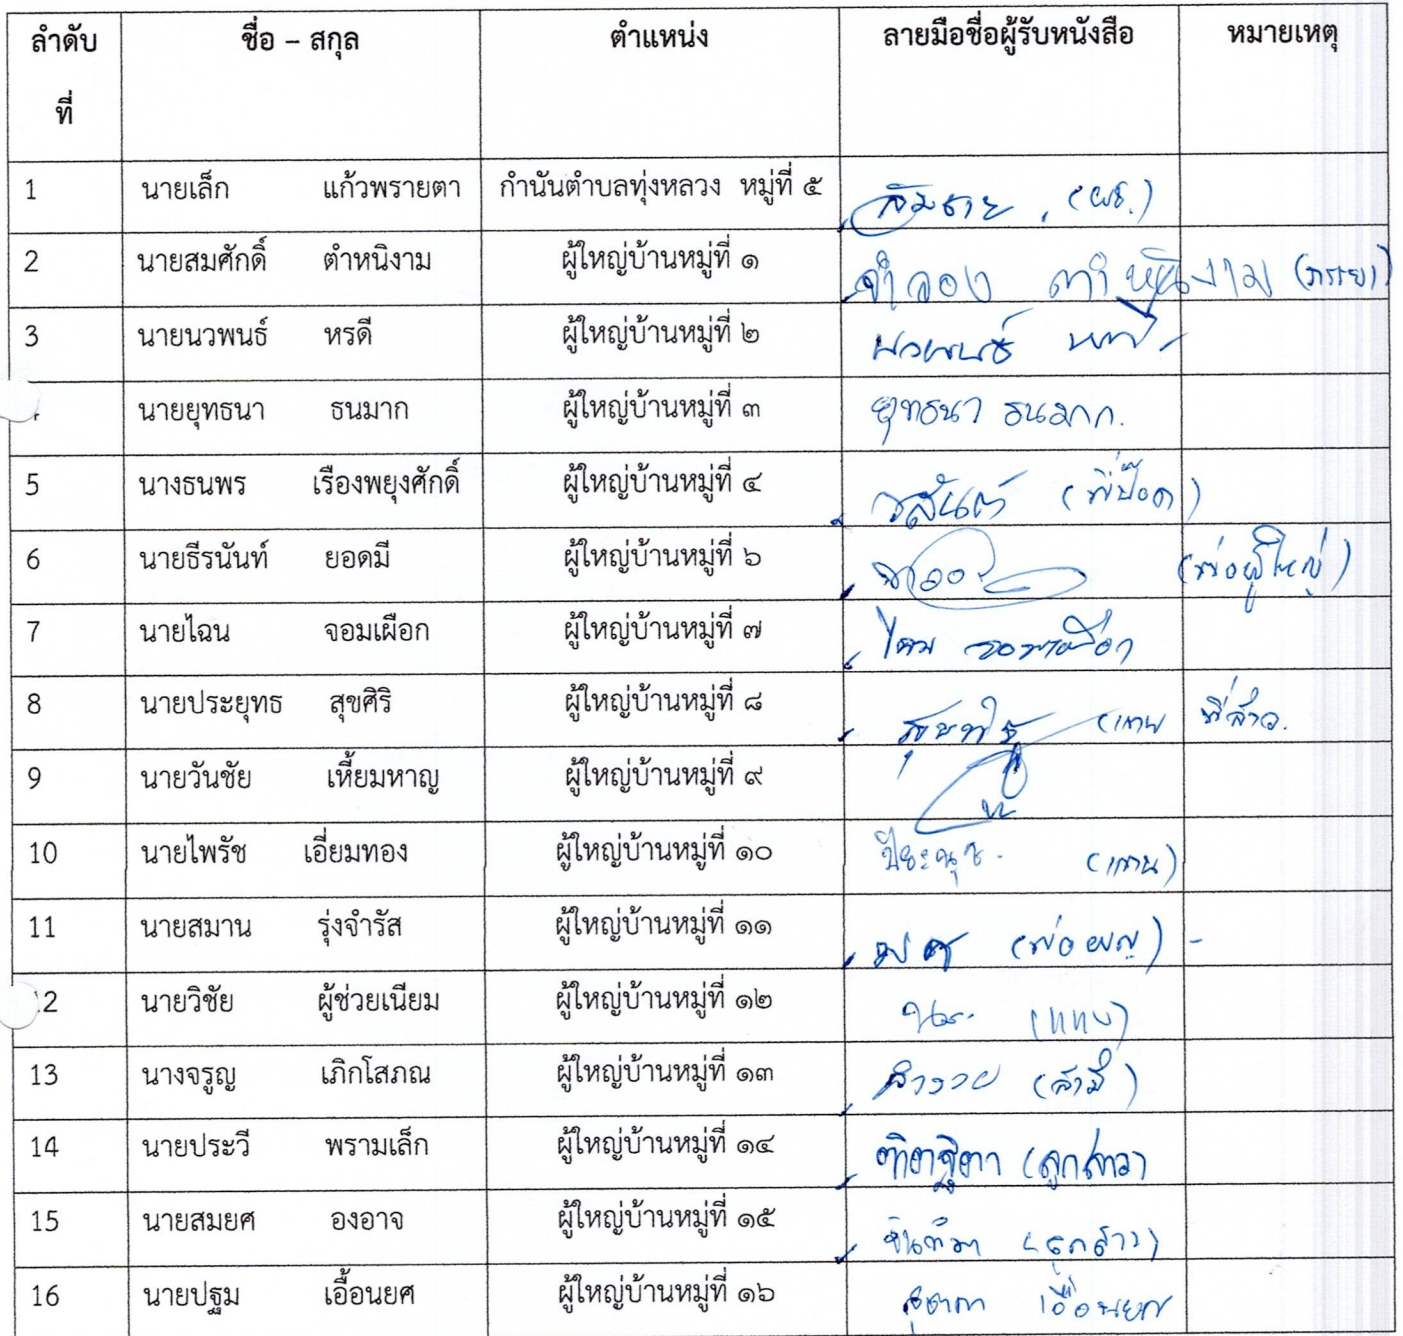 ลำดับที่ ชื่อ – สกุล ตำแหน่ง ลายมือชื่อผู้รับหนังสือ หมายเหตุ
1 นายเล็ก แก้วพรายตา กำนันตำบลทุ่งหลวง หมู่ที่ ๕
2 นายสมศักดิ์ ตำหนิงาม ผู้ใหญ่บ้านหมู่ที่ ๑ จำลอง ตำหนิงาม (ภรรยา)
3 นายนวพนธ์ หรดี ผู้ใหญ่บ้านหมู่ที่ ๒ นวพนธ์ หรดี
นายยุทธนา ธนมาก ผู้ใหญ่บ้านหมู่ที่ ๓ ยุทธนา ธนมาก.
5 นางธนพร เรืองพยุงศักดิ์ ผู้ใหญ่บ้านหมู่ที่ ๔ วสันต์
6 นายธีรนันท์ ยอดมี ผู้ใหญ่บ้านหมู่ที่ ๖ (พ่อผู้ใหญ่)
7 นายไฉน จอมเผือก ผู้ใหญ่บ้านหมู่ที่ ๗ จอมเผือก
8 นายประยุทธ สุขศิริ ผู้ใหญ่บ้านหมู่ที่ ๘ (แทน พี่สาว.
9 นายวันชัย เหี้ยมหาญ ผู้ใหญ่บ้านหมู่ที่ ๙
10 นายไพรัช เอี่ยมทอง ผู้ใหญ่บ้านหมู่ที่ ๑๐ ปิยะนุช. (แทน)
11 นายสมาน รุ่งจำรัส ผู้ใหญ่บ้านหมู่ที่ ๑๑ (พ่อ ผญ) -
12 นายวิชัย ผู้ช่วยเนียม ผู้ใหญ่บ้านหมู่ที่ ๑๒ (แทน)
13 นางจรูญ เภิกโสภณ ผู้ใหญ่บ้านหมู่ที่ ๑๓ (สามี)
14 นายประวี พรามเล็ก ผู้ใหญ่บ้านหมู่ที่ ๑๔ (ลูกสาว)
15 นายสมยศ องอาจ ผู้ใหญ่บ้านหมู่ที่ ๑๕ (ลูกสาว)
16 นายปฐม เอื้อนยศ ผู้ใหญ่บ้านหมู่ที่ ๑๖ เอื้อนยศ